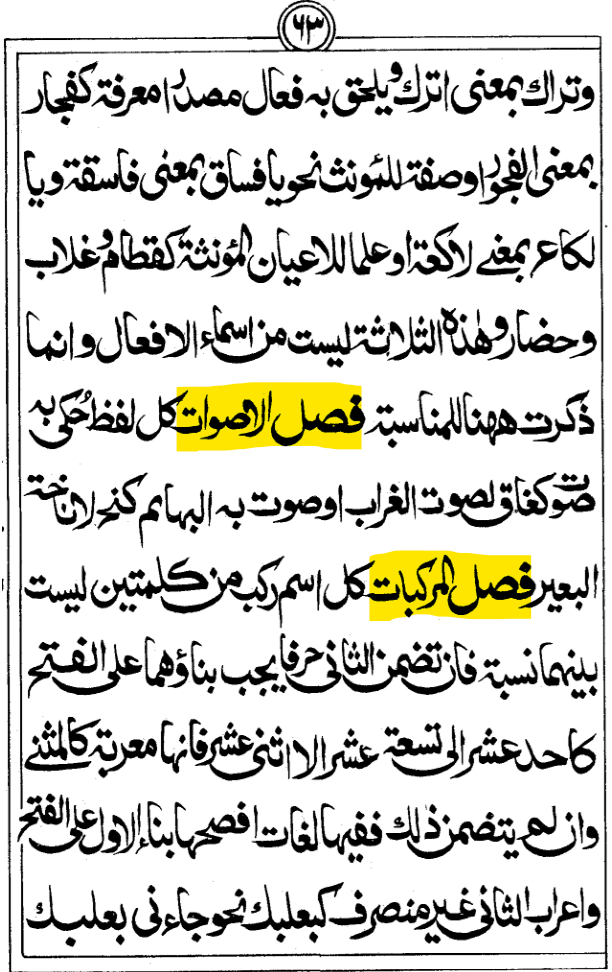 ٦٣
وتراك بمعنى اترك ويلحق به فعال مصدرا معرفة كفجار
بمعنى الفجور اوصفة للمؤنث نحو يا فساق بمعنى فاسقة ويا
لكاع بمعنے لاكعة او علما للاعيان المؤنثة كقطام وغلاب
وحضار وهذه الثلاثة ليست من اسماء الافعال وانما
ذكرت ههنا للمناسبة فصل الاصوات كل لفظ حُكى به
صوت كغاق لصوت الغراب اوصوت به البهائم كنخ لاناخة
البعير فصل المركبات كل اسم ركب من كلمتين ليست
بينهما نسبة فان تضمن الثانى حرفا يجب بناؤهما على الفتح
كاحد عشر الى تسعة عشر الا اثنى عشر فانها معربة كالمثنے
وان لم يتضمن ذلك ففيها لغات افصحها بناء الاول على الفتح
واعراب الثانى غير منصرف كبعلبك نحو جاءنى بعلبك